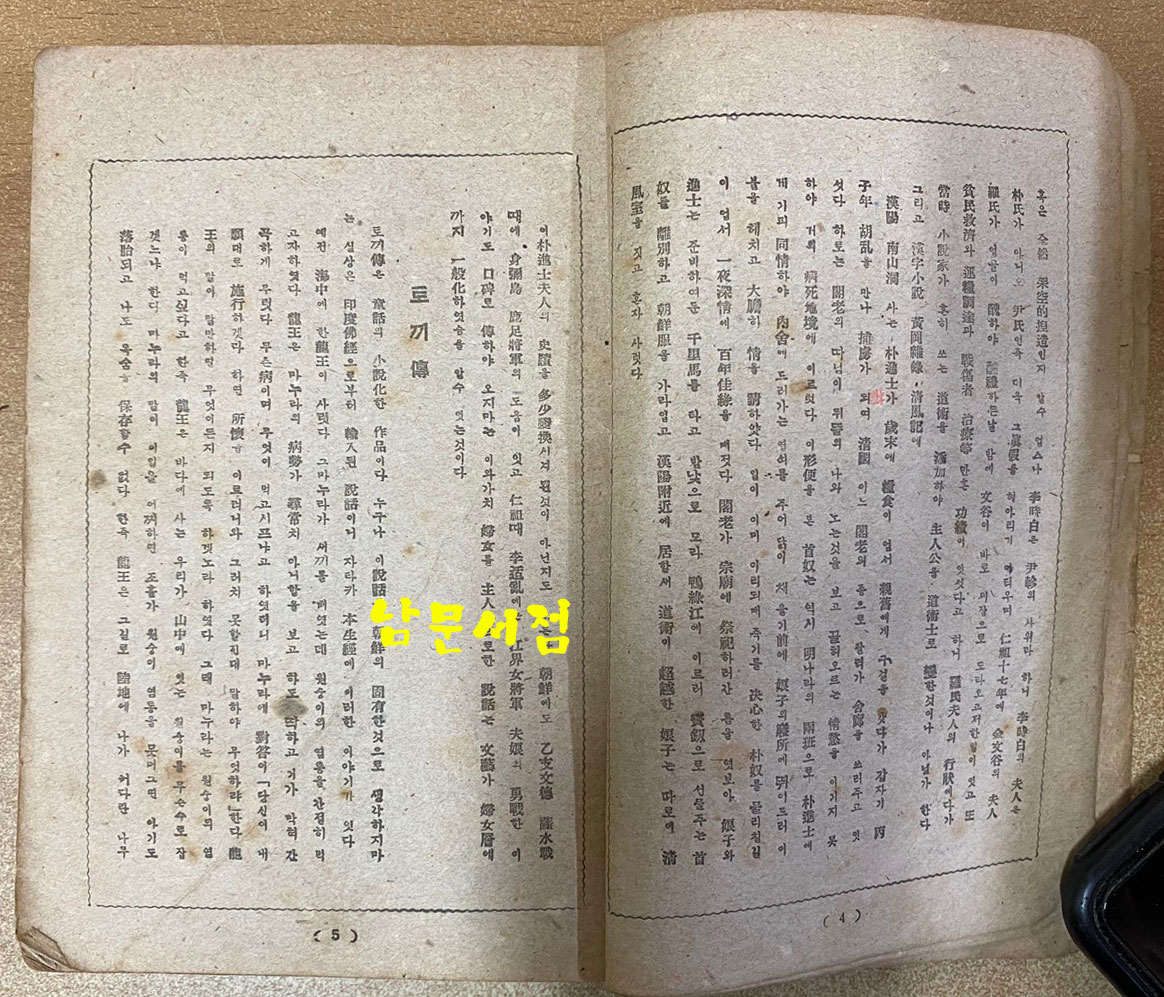 혹은 全然 架空的 捏造인지 알수 업스나 李時白은 尹軫의 사위라 하니 李時白의 夫人은
朴氏가 아니오 尹氏인즉 더욱 그 眞假를 혀아리기 어려우며 仁祖十七年에 金文谷의 夫人
羅氏가 얼골이 醜하야 醮禮하든날 밤에 文谷이 바로 도라오고저한일이 잇고 또
貧民救濟와 運糧調達과 戰傷者 治療等 만은 功績이 잇섯다고 하니 羅氏夫人의 行狀에다가
當時 小說家가 흔히 쓰는 道術을 添加하야 主人公을 道術士로 變한것이나 아닐가 한다
그리고 漢字小說 黃岡雜錄·淸風記에
漢陽 南山洞 사는 朴進士가 歲末에 糧食이 업서 親舊에게 구걸을 갓다가 갑자기 丙
子年 胡亂을 만나 捕虜가 되여 淸國 어느 閣老의 종으로 팔려가 舍廊을 쓰러주고 잇
섯다 하로는 閣老의 따님이 뒤뜰의 나와 노는것을 보고 끌허오르는 情慾을 이기지 못
하야 거의 病死地境에 이르럿다 이形便을 본 首奴는 역시 明나라의 兩班으로 朴進士에
게 기피 同情하야 內舍에 드러가는 열쇠를 주어 닭이 채 울기前에 娘子의 寢所에 뛰어드러 이
불을 헤치고 大膽히 情을 請하얏다 일이 이미 이리되매 죽기를 決心한 朴奴를 물리칠길
이 업서 一夜深情에 百年佳緣을 매젓다 閣老가 宗廟에 祭祀하러간 틈을 엿보아 娘子와
進士는 준비하여둔 千里馬를 타고 밤낮으로 모라 鴨綠江에 이르러 寶釼으로 선물주는 首
奴를 離別하고 朝鮮服을 가라입고 漢陽附近에 居할새 道術이 超越한 娘子는 따로에 淸
風室을 짓고 혼자 사럿다
(4)
이朴進士夫人의 史蹟을 多少變換시켜 된것이 아닌지도 朝鮮에도 乙支文德 薩水戰
때에 身彌島 鹿足將軍의 도움이 잇고 仁祖때 李适亂에 江界女將軍 夫娘의 勇戰한 이
야기도 口碑로 傳하야 오지마는 이와가치 婦女를 主人으로한 說話는 文藝가 婦女層에
까지 一般化하엿슴을 알수 잇는것이다
토끼傳
토끼傳은 童話의 小說化한 作品이다 누구나 이說話 朝鮮의 固有한것으로 생각하지마
는 실상은 印度佛經으로부터 輸入된 說話이니 자타카 本生經에 이러한 이야기가 잇다
예전 海中에 한龍王이 사럿다 그마누라가 새끼를 배엿는데 원숭이의 염통을 간절히 먹
고자하엿다 龍王은 마누라의 病勢가 尋常치 아니함을 보고 하도 딱하고 기가 막혀 간
곡하게 무럿다 무슨病이며 무엇이 먹고시프냐고 하엿더니 마누라에 對答이 「당신이 내
願대로 施行하겟다 하면 所懷를 이르려니와 그러치 못할진대 말하야 무엇하랴」한다 龍
王의 말이 말만하면 무엇이든지 되도록 하겟노라 하엿다 그때 마누라는 원숭이의 염
통이 먹고싶다고 한즉 龍王은 바다에 사는 우리가 山中에 잇는 원숭이를 무슨수로 잡
겟느냐 한디 마누라의 말이 이일을 어찌하면 조흘가 원숭이 염통을 못먹그면 아기도
落胎되고 나도 목숨을 保存할수 없다 한즉 龍王은 그길로 陸地에 나가 커다란 나무
(5)
남문서점